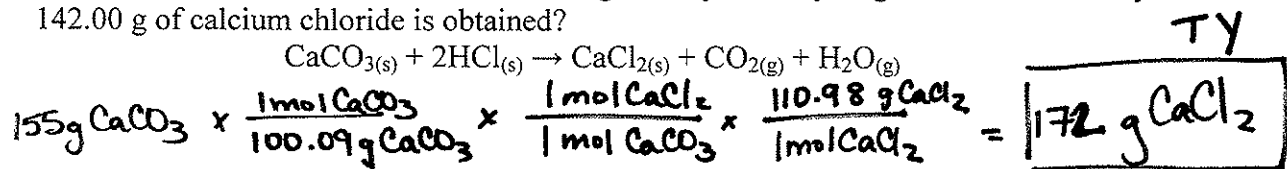 142.00 g of calcium chloride is obtained?
TY
CaCO3(s) + 2HCl(s) → CaCl2(s) + CO2(g) + H2O(g)
155g CaCO3 x 1mol CaCO3 / 100.09g CaCO3 x 1mol CaCl2 / 1 mol CaCO3 x 110.98 g CaCl2 / 1molCaCl2 = 172 g CaCl2